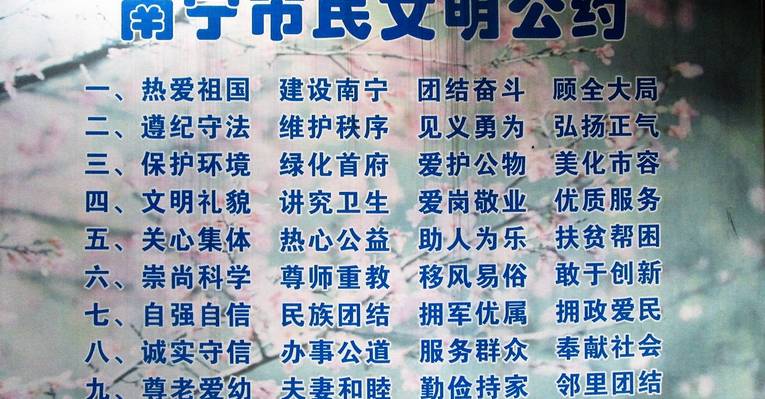 南宁市民文明公约
一、热爱祖国 建设南宁 团结奋斗 顾全大局
二、遵纪守法 维护秩序 见义勇为 弘扬正气
三、保护环境 绿化首府 爱护公物 美化市容
四、文明礼貌 讲究卫生 爱岗敬业 优质服务
五、关心集体 热心公益 助人为乐 扶贫帮困
六、崇尚科学 尊师重教 移风易俗 敢于创新
七、自强自信 民族团结 拥军优属 拥政爱民
八、诚实守信 办事公道 服务群众 奉献社会
九、尊老爱幼 夫妻和睦 勤俭持家 邻里团结